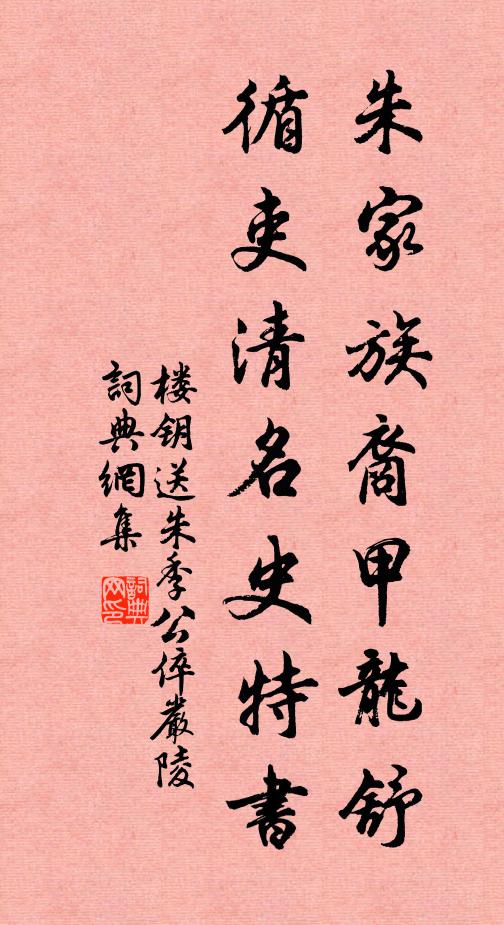 朱家族裔甲龍舒
循吏清名史特書
楼钥送朱季公倅嚴陵
詞典網集
詞典網印